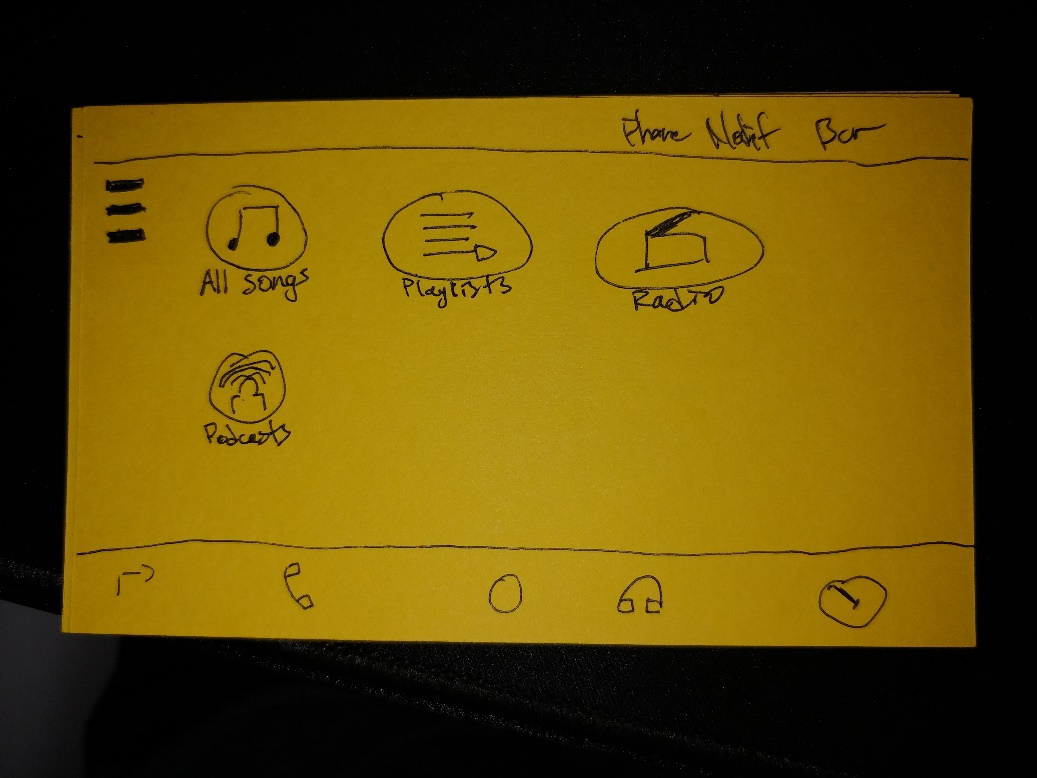 Phone Notif Bar
All songs
Playlists
Radio
Podcasts